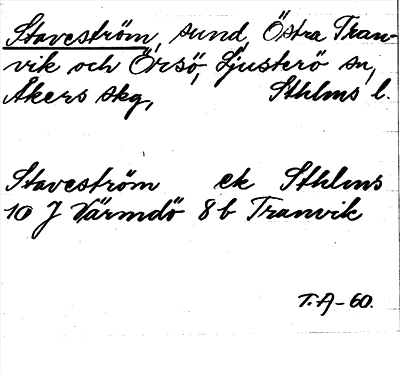 Staveström, sund, Östra Tran-
vik och Örsö, Ljusterö sn,
Åkers skg, Sthlms l.
Staveström ek Sthlms
10 J Värmdö 8 b Tranvik
T.A-60.